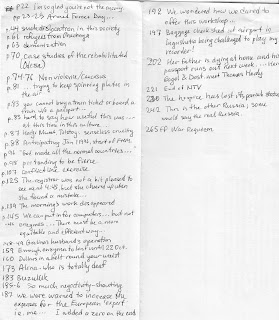 # p22 I'm so glad you're not the enemy
pp 23-25 Armed Forces Day...
p44 such disaffection in this society
p.61 refugees from Chechnya
p63 demilitarisation
p.70 Case studies of the rehabilitated
p74-76 Non violence/Caucasus
p. trying to keep spinning plates in the air
p.83 you cannot buy a train ticket or board a train with a passport
p.85 hard to say how useful this was... at this time in this culture.
p.87 Lady Blunt Tolstoy: senseless cruelty
p.88 Anticipating Jan 1994, start of
p.96 Ted made all the normal courtesies...
p.98 pretending to be fierce
p.107 conflict exercise
p.125 The registrar was not a bit pleased to see us at 4.45, but she cheered up when she found a mistake...
p.134 The morning's work disappeared
p.145 We can put in for computers... but not enzymes... There must be a more equitable and efficient way...
148-49 Galina's husband's operation
159 Enough enzyme to last until 22 Oct.
160 Dollars in a belt round your waist
173 Alena - who is totally deaf
183 Buzuluk
185-6 So much negativity - shouting
187 we were warned to increase the expenses for the European 'expert' i.e. me... I added a zero on the end
192 We wondered how we dared to offer this workshop..
197 Baggage checked at airport is legislature being challenged to play my recorder!
202 Her father is dying at home and
passport runs out next week.. Hence
Hegel & Dost meet Thomas Hardy
221 End of NTV
230 The hospice has lost its parish status
242 This is the other Russia; some would say the real Russia.
265 War Requiem